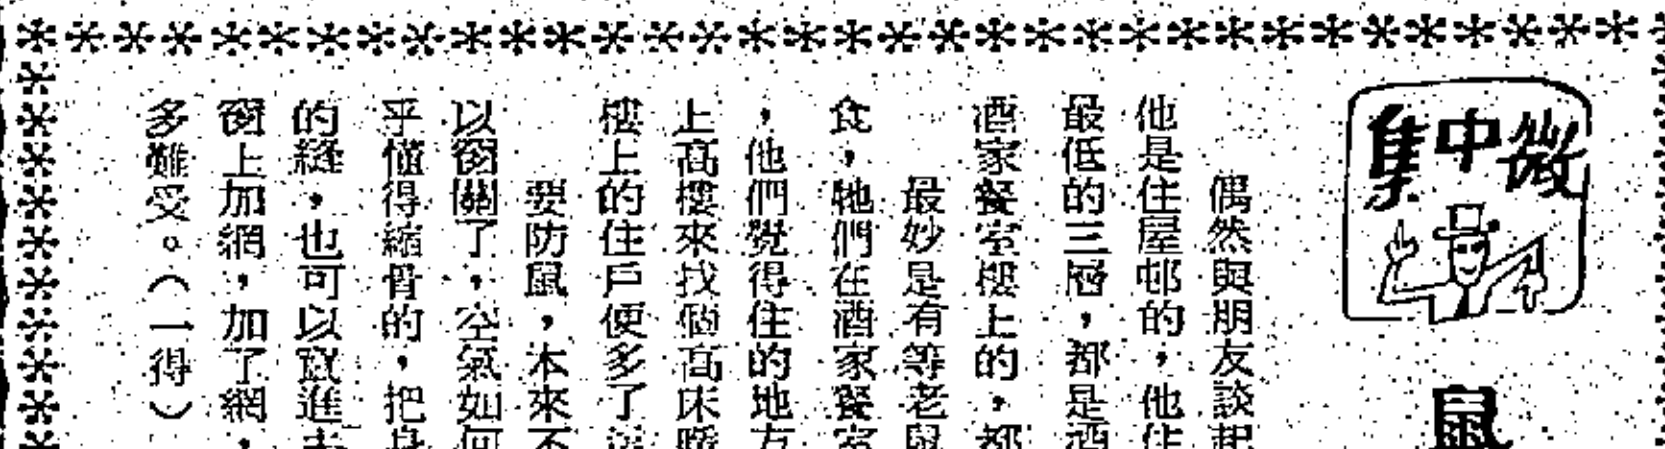 微中集
鼠
偶然與朋友談起
他是住屋邨的，他住
最低的三層，都是酒
酒家餐室樓上的，都
最妙是有等老鼠
食，牠們在酒家餐室
，他們覺得住的地方
上高樓來找個高床
樓上的住戶便多了
要防鼠，本來不
以窗關了，空氣如何
乎懂得縮骨的，把身
的縫，也可以竄進去
窗上加網，加了網，
多難受。（一得）